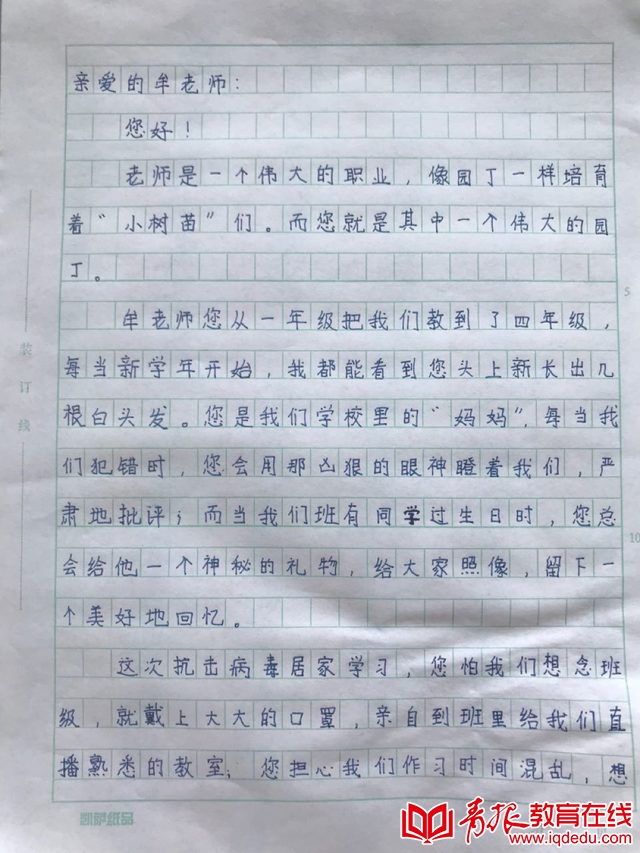 亲爱的牟老师：
您好！
老师是一个伟大的职业，像园丁一样培育
着“小树苗”们。而您就是其中一个伟大的园
丁。
牟老师您从一年级把我们教到了四年级，
每当新学年开始，我都能看到您头上新长出几
根白头发。您是我们学校里的“妈妈”，每当我
们犯错时，您会用那凶狠的眼神瞪着我们，严
肃地批评；而当我们班有同学过生日时，您总
会给他一个神秘的礼物，给大家照像，留下一
个美好地回忆。
这次抗击病毒居家学习，您怕我们想念班
级，就戴上大大的口罩，亲自到班里给我们直
播熟悉的教室；您担心我们作习时间混乱，想
装订线
5
10
青报教育在线
www.iqdedu.com